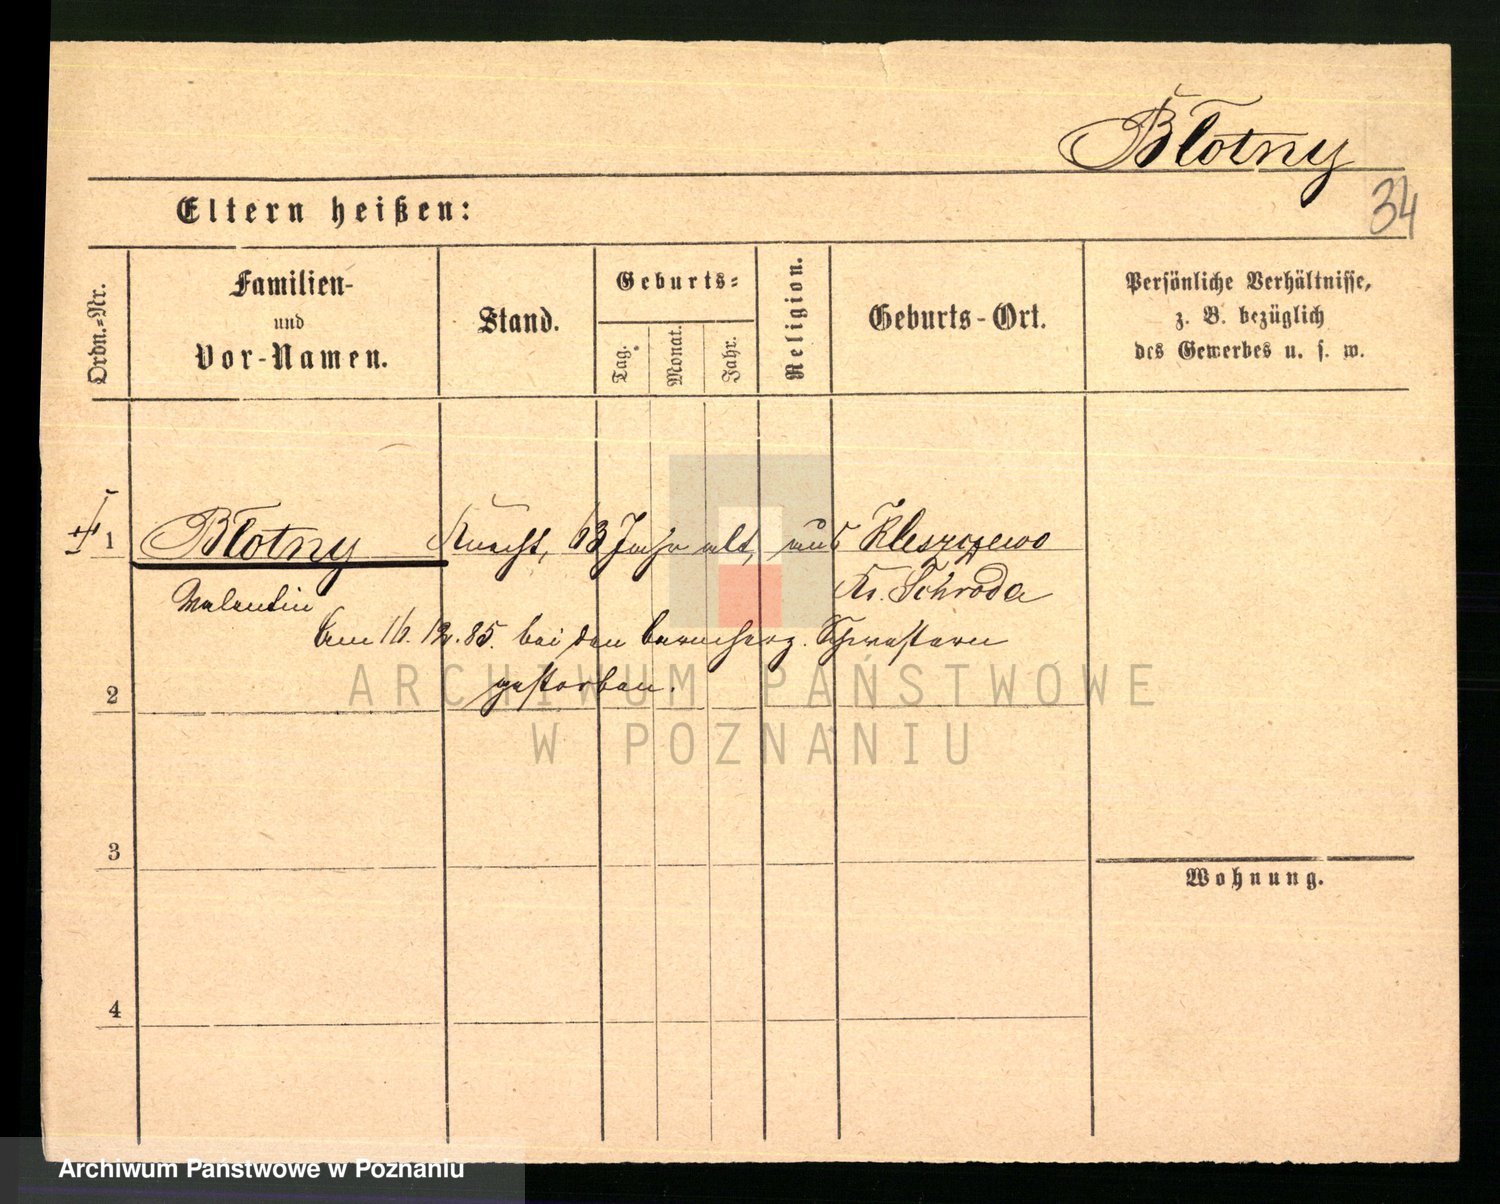 Błotny
34
Eltern heißen:
Ordn.-Nr.
Familien-
und
Vor-Namen.
Stand.
Geburts-
Tag.
Monat.
Jahr.
Religion.
Geburts-Ort.
Persönliche Verhältnisse,
z. B. bezüglich
des Gewerbes u. s. w.
1 Błotny Knecht, 63 Jahr alt, aus Kleszczewo
Valentin Kr. Schroda
am 16. 12. 85. bei den barmherz. Schwestern
gestorben.
2
3
4
Wohnung.
ARCHIWUM PAŃSTWOWE
W POZNANIU
Archiwum Państwowe w Poznaniu